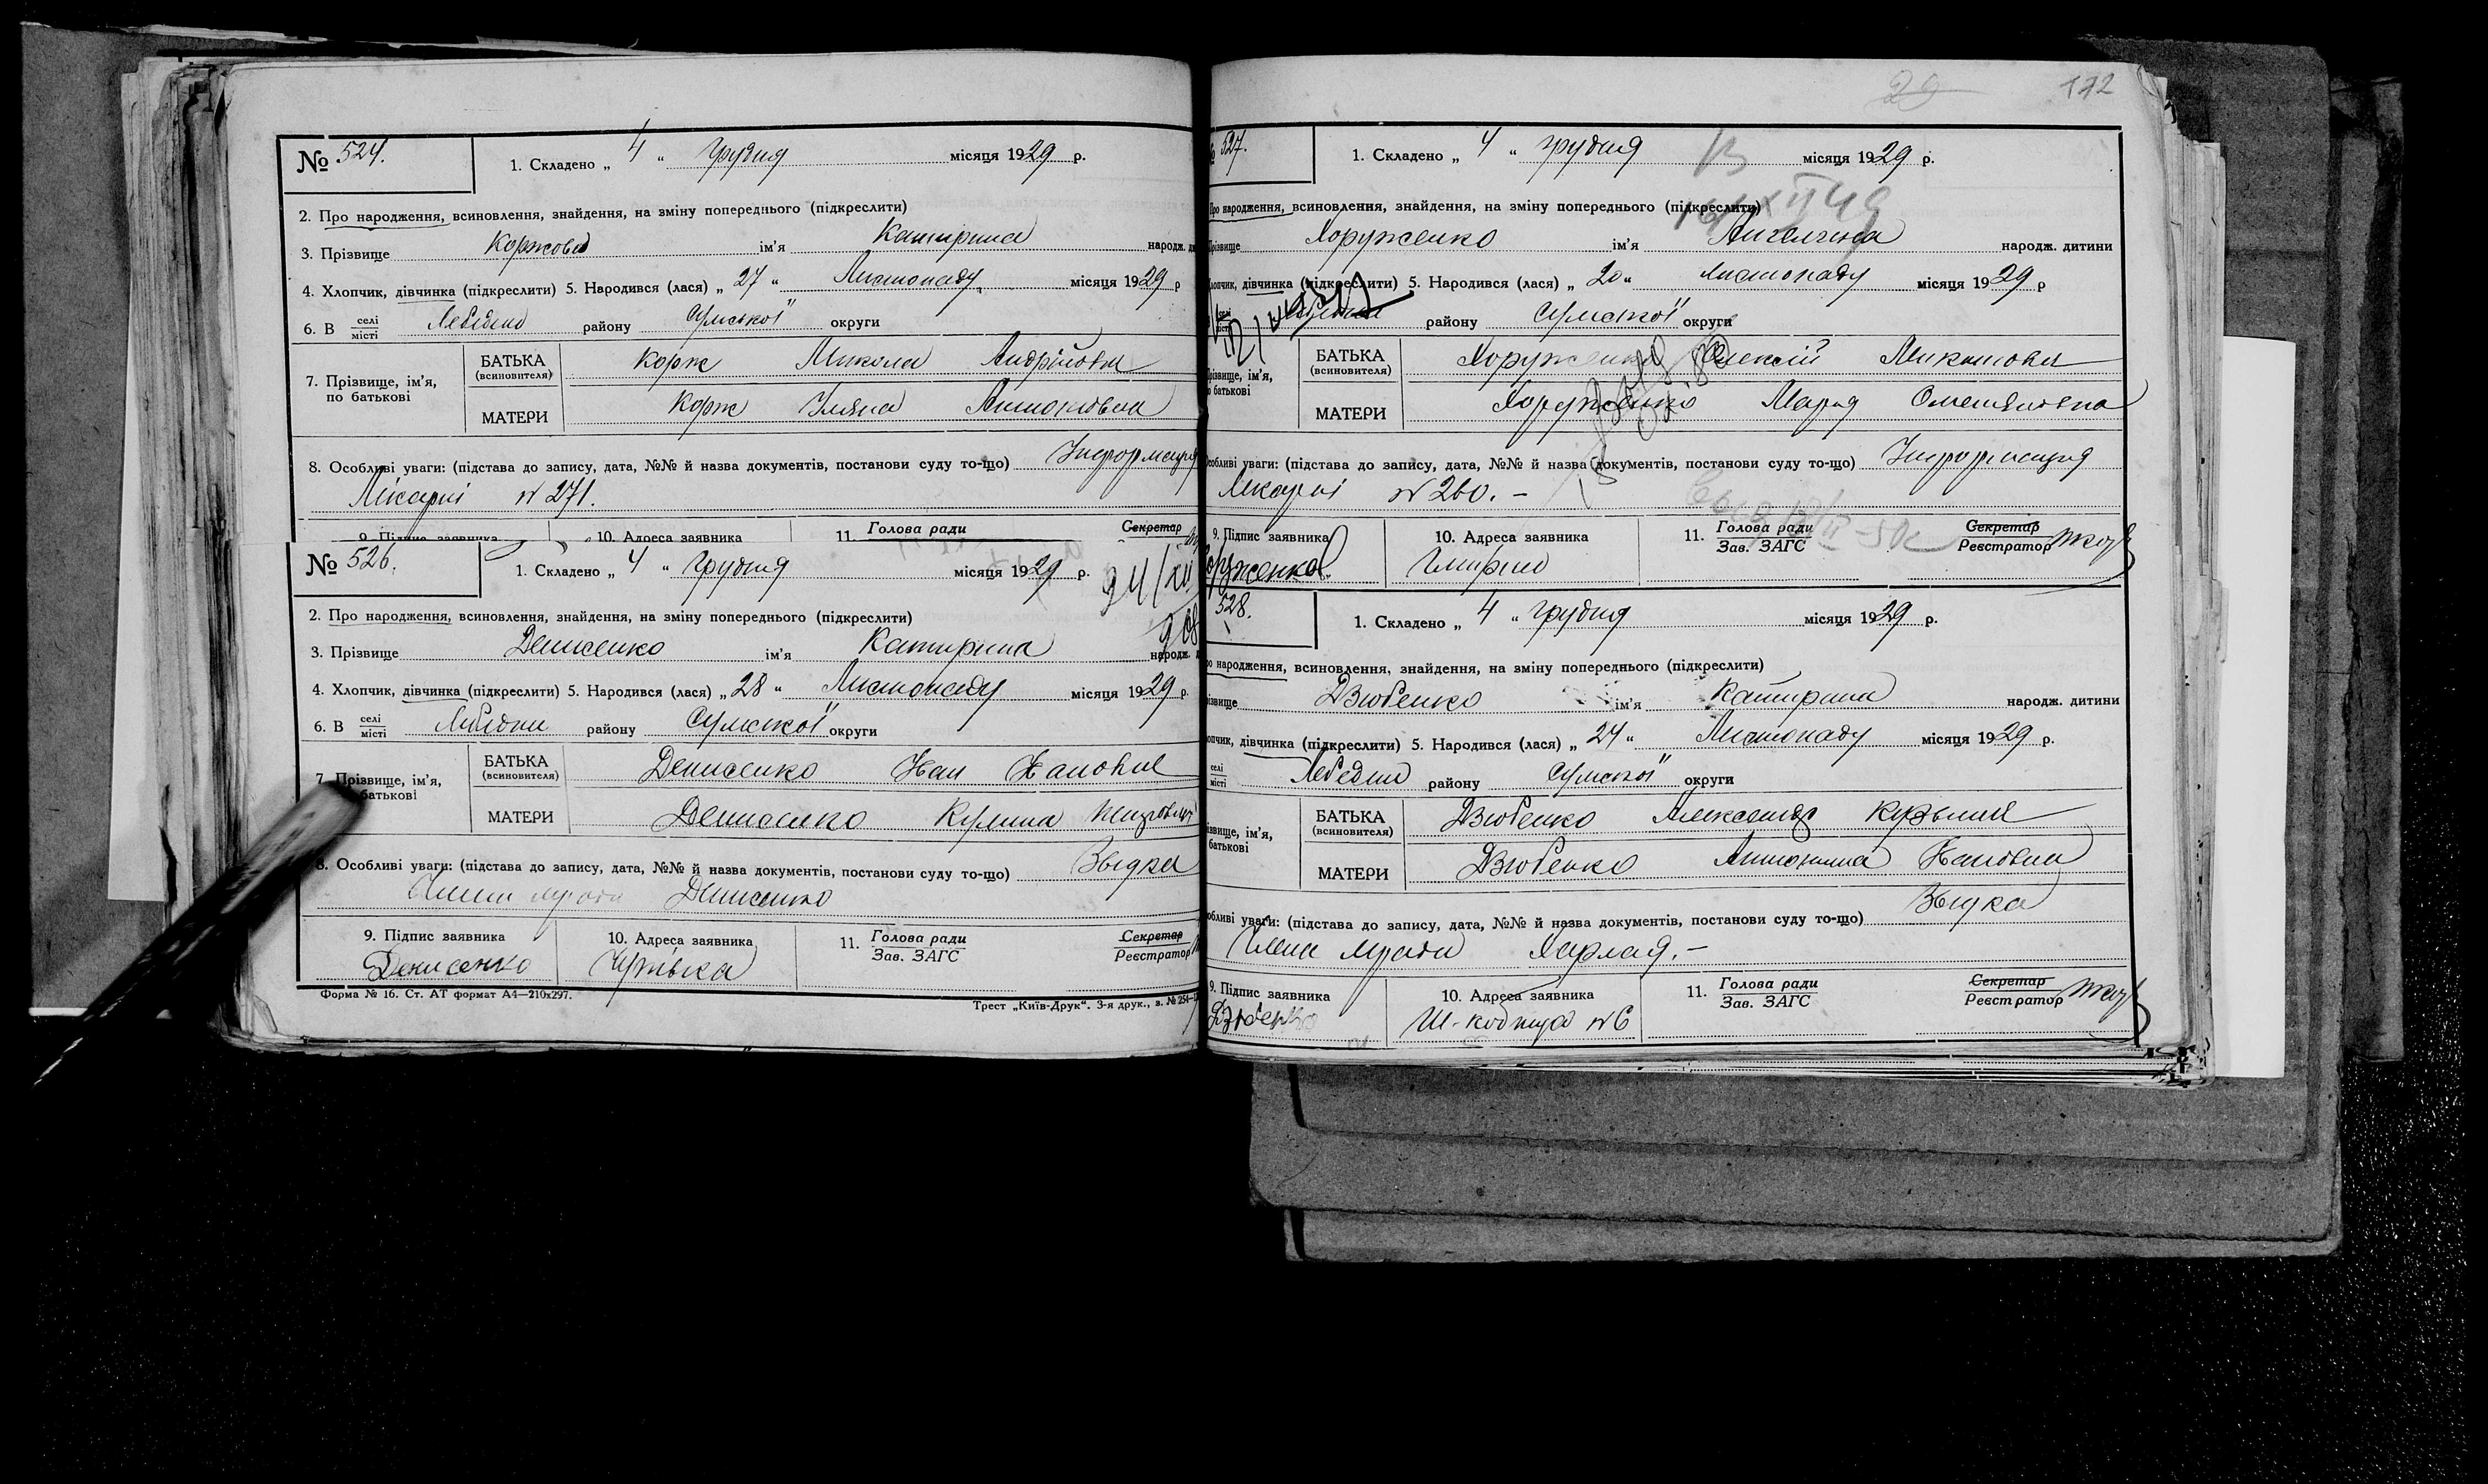 № 524.
1. Складено „ 4 “ грудня місяця 1929 р.
2. Про народження, всиновлення, знайдення, на зміну попереднього (підкреслити)
3. Прізвище Коржова ім'я Катирина народж.
4. Хлопчик, дівчинка (підкреслити) 5. Народився (лася) „ 27 “ Листопаду місяця 1929 р
6. В селі місті Лебедин району Сумської округи
7. Прізвище, ім'я, по батькові
БАТЬКА (всиновителя) Корж Микола Андрійович
МАТЕРИ Корж Уляна Антоновна
8. Особливі уваги: (підстава до запису, дата, №№ й назва документів, постанови суду то-що) Інформація
Лікарні № 271.
9. Підпис заявника 10. Адреса заявника 11. Голова ради Секретар
№ 526.
1. Складено „ 4 “ грудня місяця 1929 р.
2. Про народження, всиновлення, знайдення, на зміну попереднього (підкреслити)
3. Прізвище Денисенко ім'я Катирина народж.
4. Хлопчик, дівчинка (підкреслити) 5. Народився (лася) „ 28 “ Листопаду місяця 1929 р.
6. В селі місті Лебедин району Сумської округи
7. Прізвище, ім'я, батькові
БАТЬКА (всиновителя) Денисенко Іван Іванович
МАТЕРИ Денисенко
8. Особливі уваги: (підстава до запису, дата, №№ й назва документів, постанови суду то-що)
Денисенко
9. Підпис заявника 10. Адреса заявника 11. Голова ради Зав. ЗАГС Секретар Реєстратор
Денисенко
Форма № 16. Ст. АТ формат А4—210х297.
Трест „Київ-Друк“. 3-я друк., з. № 254
172
527.
1. Складено „ 4 “ грудня місяця 1929 р.
Про народження, всиновлення, знайдення, на зміну попереднього (підкреслити)
Прізвище Хоруженко ім'я народж. дитини
дівчинка (підкреслити) 5. Народився (лася) „ 20 “ листопаду місяця 1929 р
району Сумської округи
Прізвище, ім'я, по батькові
БАТЬКА (всиновителя) Хоруженко Олексій Микитович
МАТЕРИ Хоруженко Мария
Особливі уваги: (підстава до запису, дата, №№ й назва документів, постанови суду то-що) Інформация
Лікарні № 260. -
9. Підпис заявника 10. Адреса заявника 11. Голова ради Зав. ЗАГС Секретар Реєстратор
528.
1. Складено „ 4 “ грудня місяця 1929 р.
народження, всиновлення, знайдення, на зміну попереднього (підкреслити)
Дзюбенко ім'я Катирина народж. дитини
дівчинка (підкреслити) 5. Народився (лася) „ 24 “ Листопаду місяця 1929 р.
селі місті Лебедин району Сумської округи
БАТЬКА (всиновителя) Дзюбенко Александр Кузьмич
МАТЕРИ Дзюбенко Антонина Івановна
уваги: (підстава до запису, дата, №№ й назва документів, постанови суду то-що)
9. Підпис заявника 10. Адреса заявника 11. Голова ради Зав. ЗАГС Секретар Реєстратор